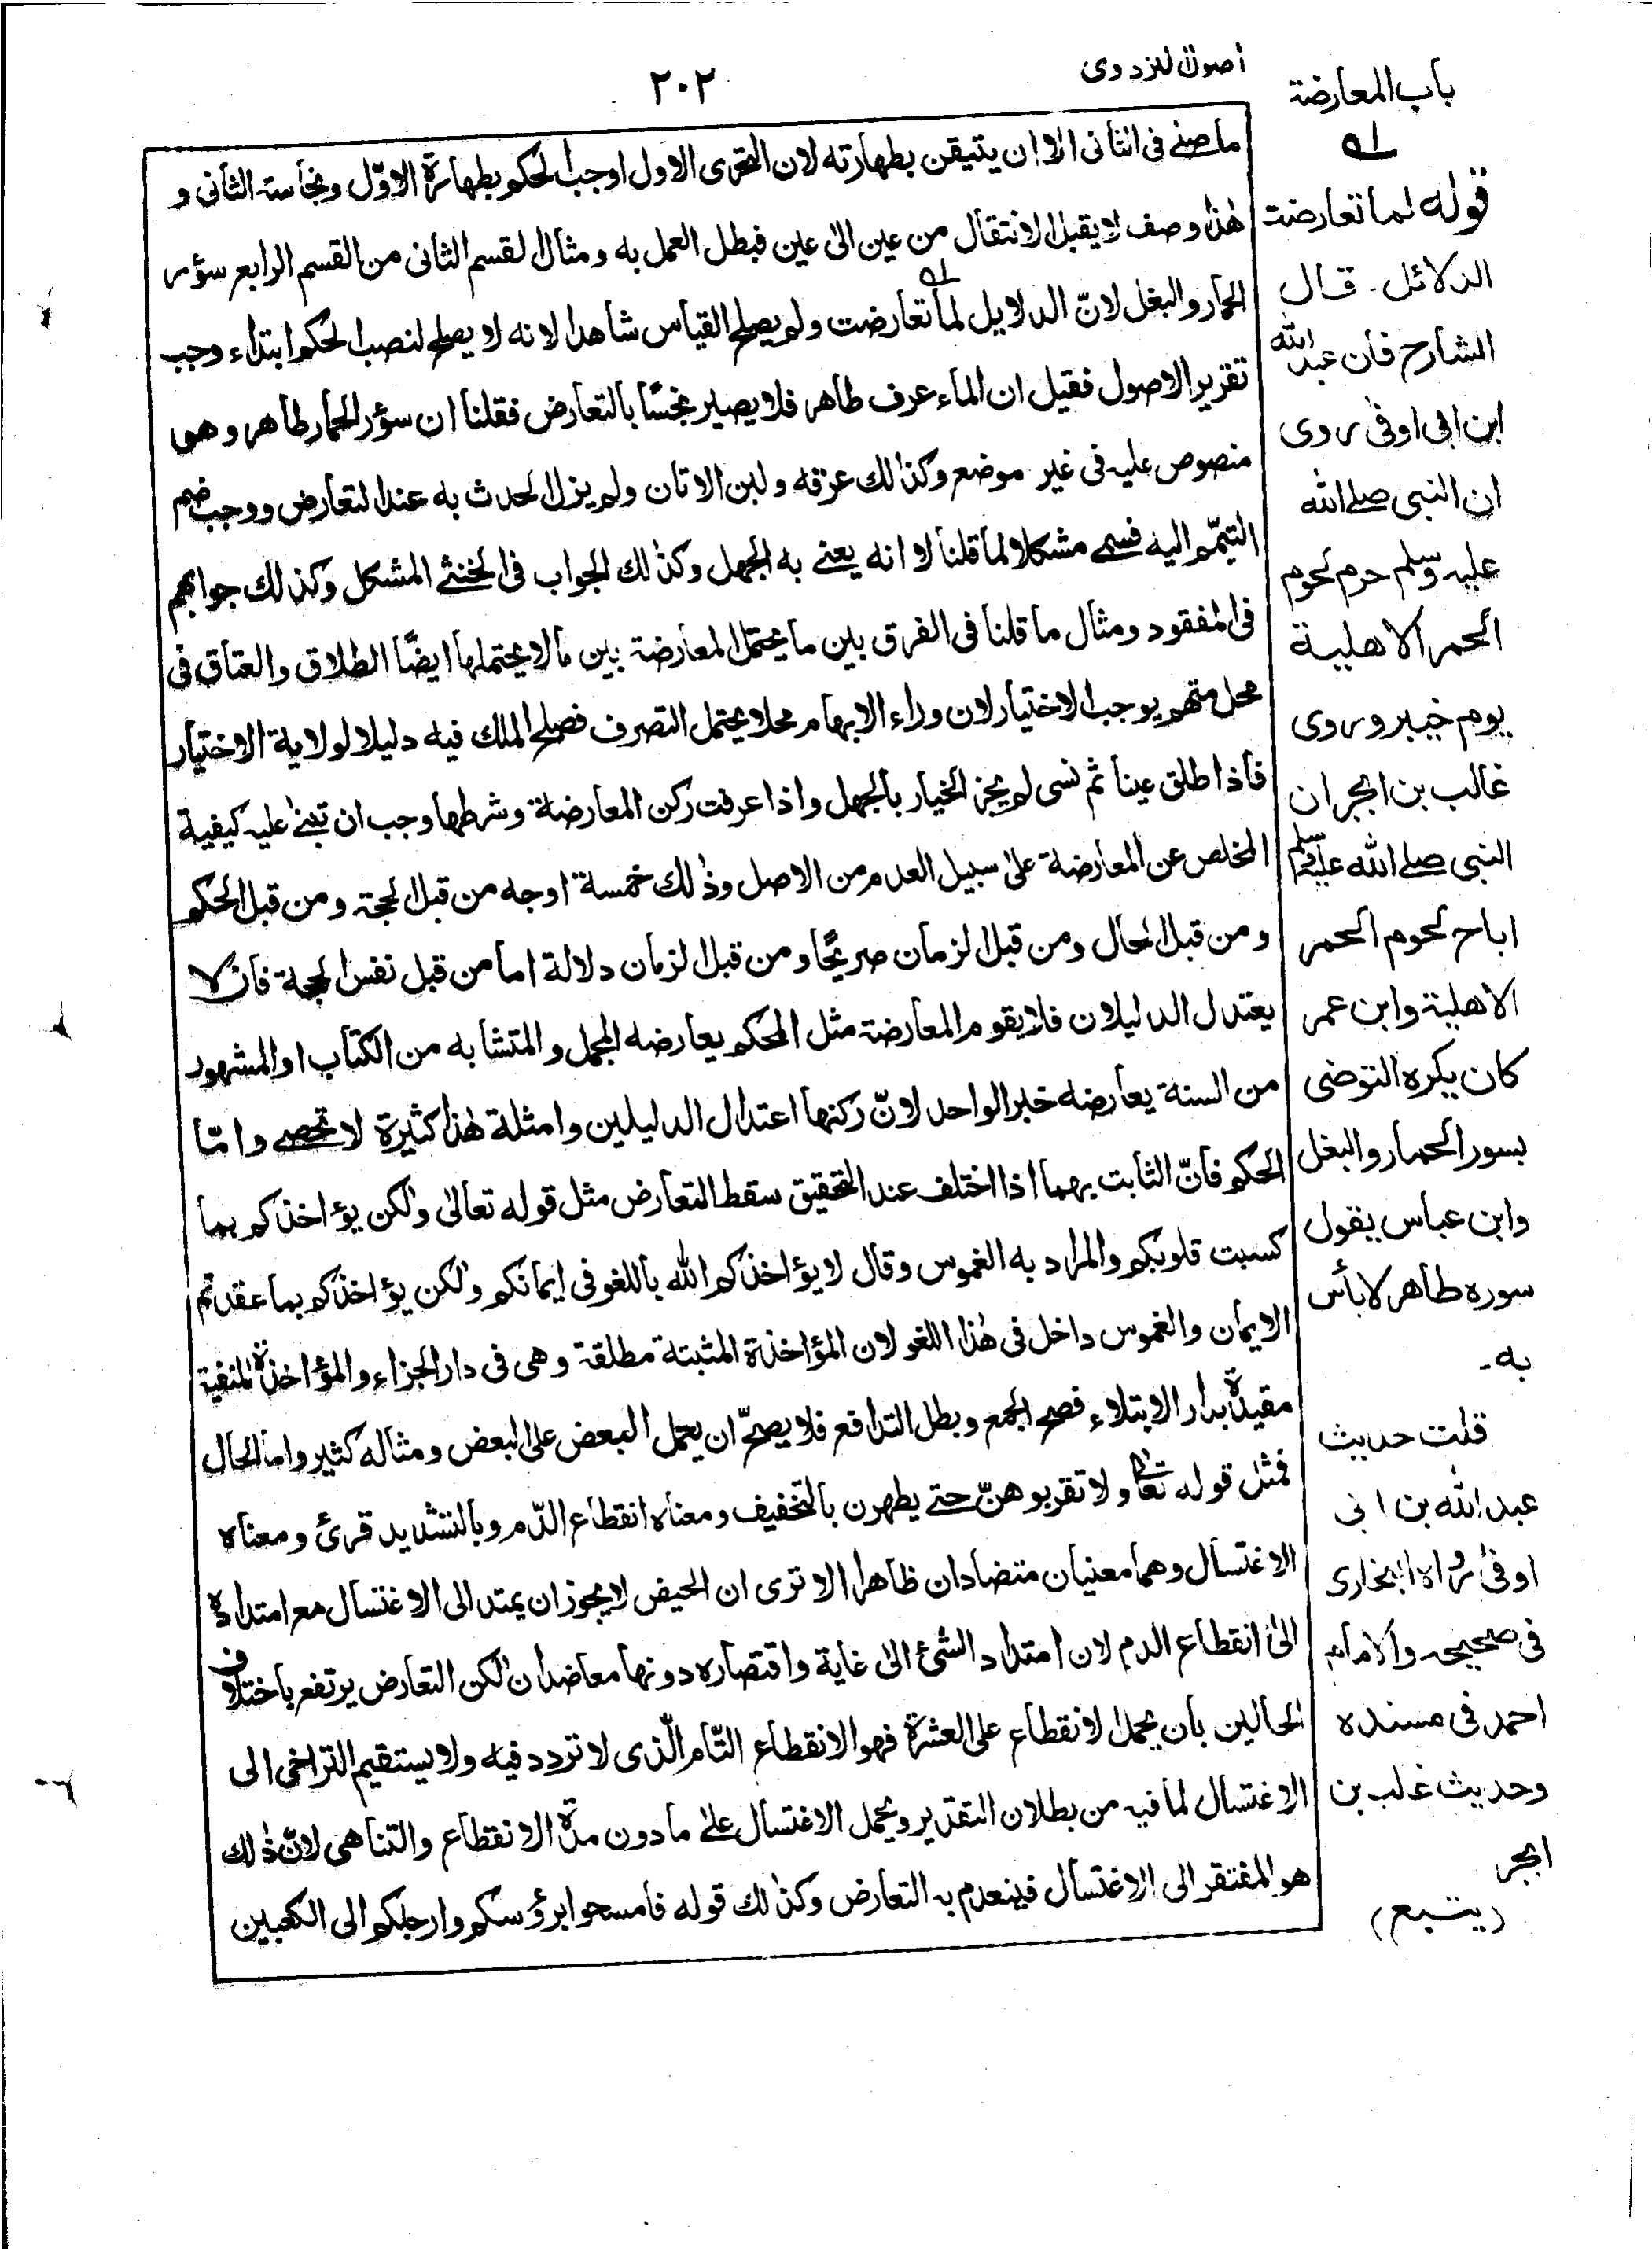 باب المعارضة
اصول للبزدوى
٢٠٢
ما صلے فى الثانى الا ان يتيقن بطهارته لان التحرى الاول اوجب الحكم بطهارة الاوّل ونجاسة الثانى و
هٰذا وصف لا يقبل الانتقال من عين الىٰ عين فبطل العمل به ومثال القسم الثانى من القسم الرابع سؤر
الحمار والبغل لانّ الدلايل لما تعارضت ولم يصلح القياس شاهدا لانه لا يصلح لنصب الحكم ابتداء وجب
تقرير الاصول فقيل ان الماء عرف طاهر فلا يصير نجسًا بالتعارض فقلنا ان سؤر الحمار طاهر و هو
منصوص عليه فى غير موضع وكذالك عرقه ولبن الاتان ولم يزل الحدث به عند التعارض ووجب ضم
التيمّم اليه فسمے مشكلا لما قلنا لا انه يعنے به الجهل وكذٰلك الجواب فى الخنثے المشكل وكذلك جوابهم
فى المفقود ومثال ما قلنا فى الفرق بين ما يحتمل المعارضة بين مالا يحتملها ايضًا الطلاق والعتاق فى
محل متهم يوجب الاختيار لان وراء الابهام محلا يحتمل التصرف فصلح الملك فيه دليلا لولاية الاختيار
فاذا طلق عينا ثم نسى لم يجز الخيار بالجهل واذا عرفت ركن المعارضة وشرطها وجب ان تبنے عليه كيفية
المخلص عن المعارضة علىٰ سبيل العدم من الاصل وذٰلك خمسة اوجه من قبل الحجة ومن قبل الحكم
ومن قبل الحال ومن قبل الزمان صريحًا ومن قبل الزمان دلالة اما من قبل نفس الحجة فان لا
يعتدل الدليلان فلا يقوم المعارضة مثل المحكم يعارضه المجمل والمتشابه من الكتاب او المشهور
من السنة يعارضه خبر الواحد لانّ ركنها اعتدال الدليلين وامثلة هٰذا كثيرة لا تحصے وامّا
الحكم فانّ الثابت بهما اذا اختلف عند التحقيق سقط التعارض مثل قوله تعالىٰ ولٰكن يؤاخذكم بما
كسبت قلوبكم والمراد به الغموس وقال لا يؤاخذكم الله باللغو فى ايمانكم ولٰكن يؤاخذكم بما عقدتم
الايمان والغموس داخل فى هٰذا اللغو لان المؤاخذة المثبتة مطلقة وهى فى دار الجزاء والمؤاخذة المنفية
مقيدة بدار الابتلاء فصح الجمع وبطل التدافع فلا يصحّ ان يحمل البعض على البعض ومثاله كثير واما الحال
فمثل قوله تعالى ولا تقربوهنّ حتے يطهرن بالتخفيف ومعناه انقطاع الدّم وبالتشديد قرئ ومعناه
الاغتسال وهما معنيان متضادان ظاهرا الا ترى ان الحيض لا يجوز ان يمتد الى الاغتسال مع امتداده
الىٰ انقطاع الدم لان امتداد الشئ الىٰ غاية واقتصاره دونها معاضدان لٰكن التعارض يرتفع باختلاف
الحالين بان يحمل الانقطاع على العشرة فهو الانقطاع التّام الّذى لا تردد فيه ولا يستقيم التراخى الى
الاغتسال لما فيه من بطلان التقدير ويحمل الاغتسال علےٰ ما دون مدة الانقطاع والتناهى لانّ ذٰلك
هو المفتقر الى الاغتسال فينعدم به التعارض وكذٰلك قوله فامسحوا برؤسكم وارجلكم الى الكعبين
قوله لما تعارضت
الدلائل۔ قال
الشارح فان عبد الله
ابن ابى اوفى روى
ان النبى صلے الله
عليه وسلم حرم لحوم
الحمر الاهلية
يوم خيبر وروى
غالب بن ابجر ان
النبى صلے الله عليه وسلم
اباح لحوم الحمر
الاهلية وابن عمر
كان يكره التوضى
بسور الحمار والبغل
وابن عباس يقول
سوره طاهر لا بأس
به۔
قلت حديث
عبد الله بن ابى
اوفىٰ رواه البخارى
فى صحيحه والامام
احمد فى مسنده
وحديث غالب بن
ابجر
(يتبع)